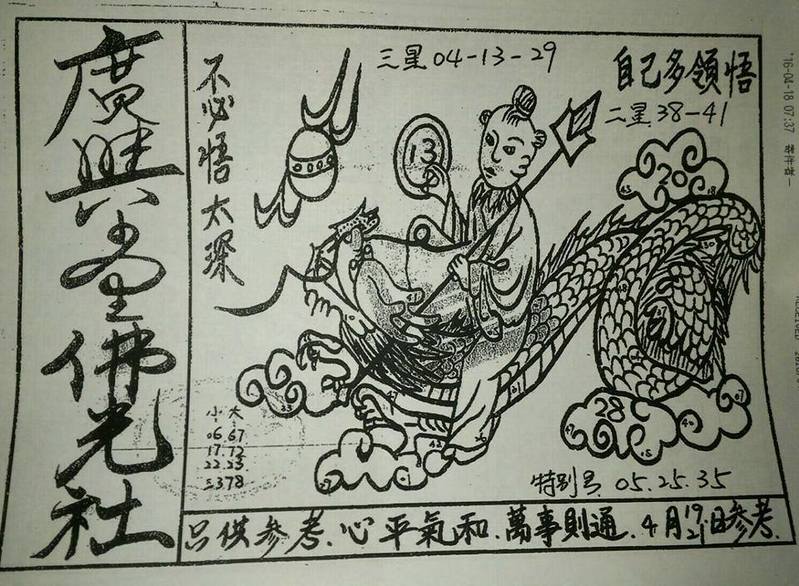 廣興堂佛光社
不必悟太琛
三星04-13-29
自己多領悟
二星38-41
13
20
28
小 大
06 67
17 72
22 23
5378
特别号 05.25.35
只供参考.心平氣和.萬事則通.4月19/21日参考.
'16-04-18 07:37 寄件者-